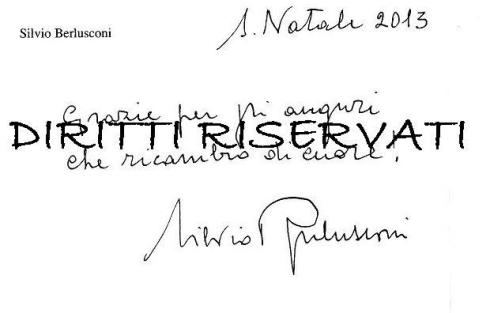 S. Natale 2013
Silvio Berlusconi
Grazie per gli auguri
DIRITTI RISERVATI
che ricambio di cuore!
Silvio Berlusconi